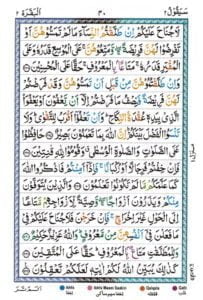 سَيَقُوْلُ ٢
٣٠
اَلْبَقَرَة ٢
لَا جُنَاحَ عَلَيْكُمْ اِنْ طَلَّقْتُمُ النِّسَآءَ مَا لَمْ تَمَسُّوْهُنَّ اَوْ
تَفْرِضُوْا لَهُنَّ فَرِيْضَةً ۖ وَّمَتِّعُوْهُنَّ عَلَى الْمُوْسِعِ قَدَرُهٗ وَعَلَى
الْمُقْتِرِ قَدَرُهٗ مَتَاعًا بِالْمَعْرُوْفِ حَقًّا عَلَى الْمُحْسِنِيْنَ
وَاِنْ طَلَّقْتُمُوْهُنَّ مِنْ قَبْلِ اَنْ تَمَسُّوْهُنَّ وَقَدْ فَرَضْتُمْ
لَهُنَّ فَرِيْضَةً فَنِصْفُ مَا فَرَضْتُمْ اِلَّاۤ اَنْ يَّعْفُوْنَ اَوْ يَعْفُوَا
الَّذِيْ بِيَدِهٖ عُقْدَةُ النِّكَاحِ وَاَنْ تَعْفُوْۤا اَقْرَبُ لِلتَّقْوٰى وَلَا
تَنْسَوُا الْفَضْلَ بَيْنَكُمْ اِنَّ اللّٰهَ بِمَا تَعْمَلُوْنَ بَصِيْرٌ حَافِظُوْا
عَلَى الصَّلَوٰتِ وَالصَّلٰوةِ الْوُسْطٰى وَقُوْمُوْا لِلّٰهِ قٰنِتِيْنَ
فَاِنْ خِفْتُمْ فَرِجَالًا اَوْ رُكْبَانًا فَاِذَاۤ اَمِنْتُمْ فَاذْكُرُوا اللّٰهَ
كَمَا عَلَّمَكُمْ مَّا لَمْ تَكُوْنُوْا تَعْلَمُوْنَ وَالَّذِيْنَ يُتَوَفَّوْنَ
مِنْكُمْ وَيَذَرُوْنَ اَزْوَاجًا وَّصِيَّةً لِّاَزْوَاجِهِمْ مَّتَاعًا
اِلَى الْحَوْلِ غَيْرَ اِخْرَاجٍ فَاِنْ خَرَجْنَ فَلَا جُنَاحَ عَلَيْكُمْ
فِيْ مَا فَعَلْنَ فِيْۤ اَنْفُسِهِنَّ مِنْ مَّعْرُوْفٍ وَاللّٰهُ عَزِيْزٌ حَكِيْمٌ
وَلِلْمُطَلَّقٰتِ مَتَاعٌ بِالْمَعْرُوْفِ حَقًّا عَلَى الْمُتَّقِيْنَ
كَذٰلِكَ يُبَيِّنُ اللّٰهُ لَكُمْ اٰيٰتِهٖ لَعَلَّكُمْ تَعْقِلُوْنَ